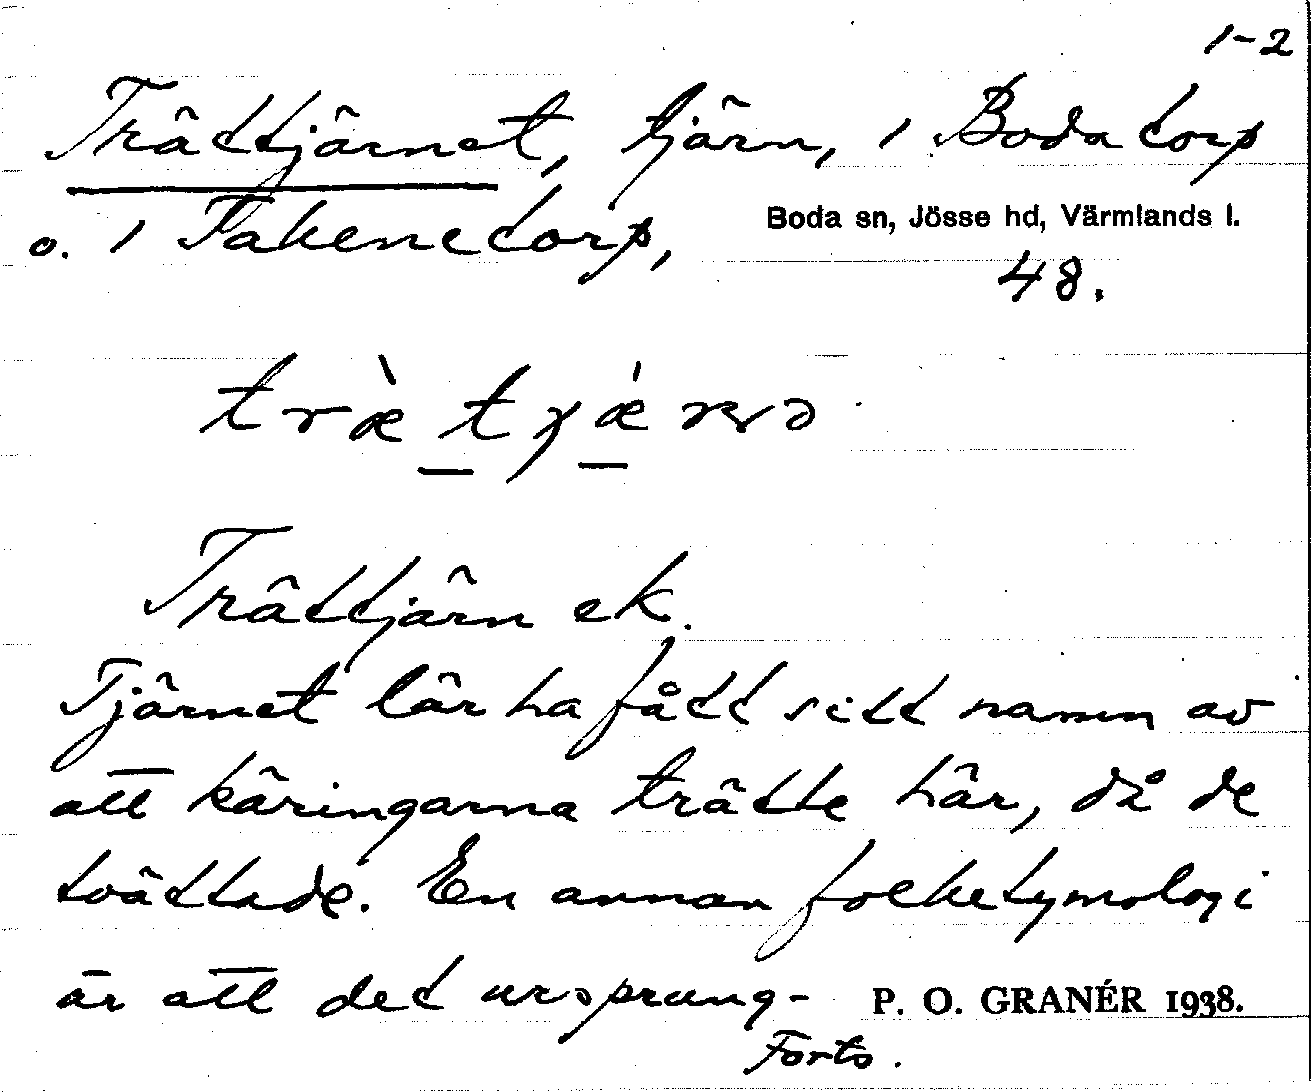 1-2
Trättjärnet, tjärn, i Bodatorp
o. i Takenetorp,
Boda sn, Jösse hd, Värmlands l.
48.
Trättjärn ek.
Tjärnet lär ha fått sitt namn av
att käringarna trätte här, då de
tvättade. En annan folketymologi
är att det ursprung-
P. O. GRANÉR 1938.
Forts.